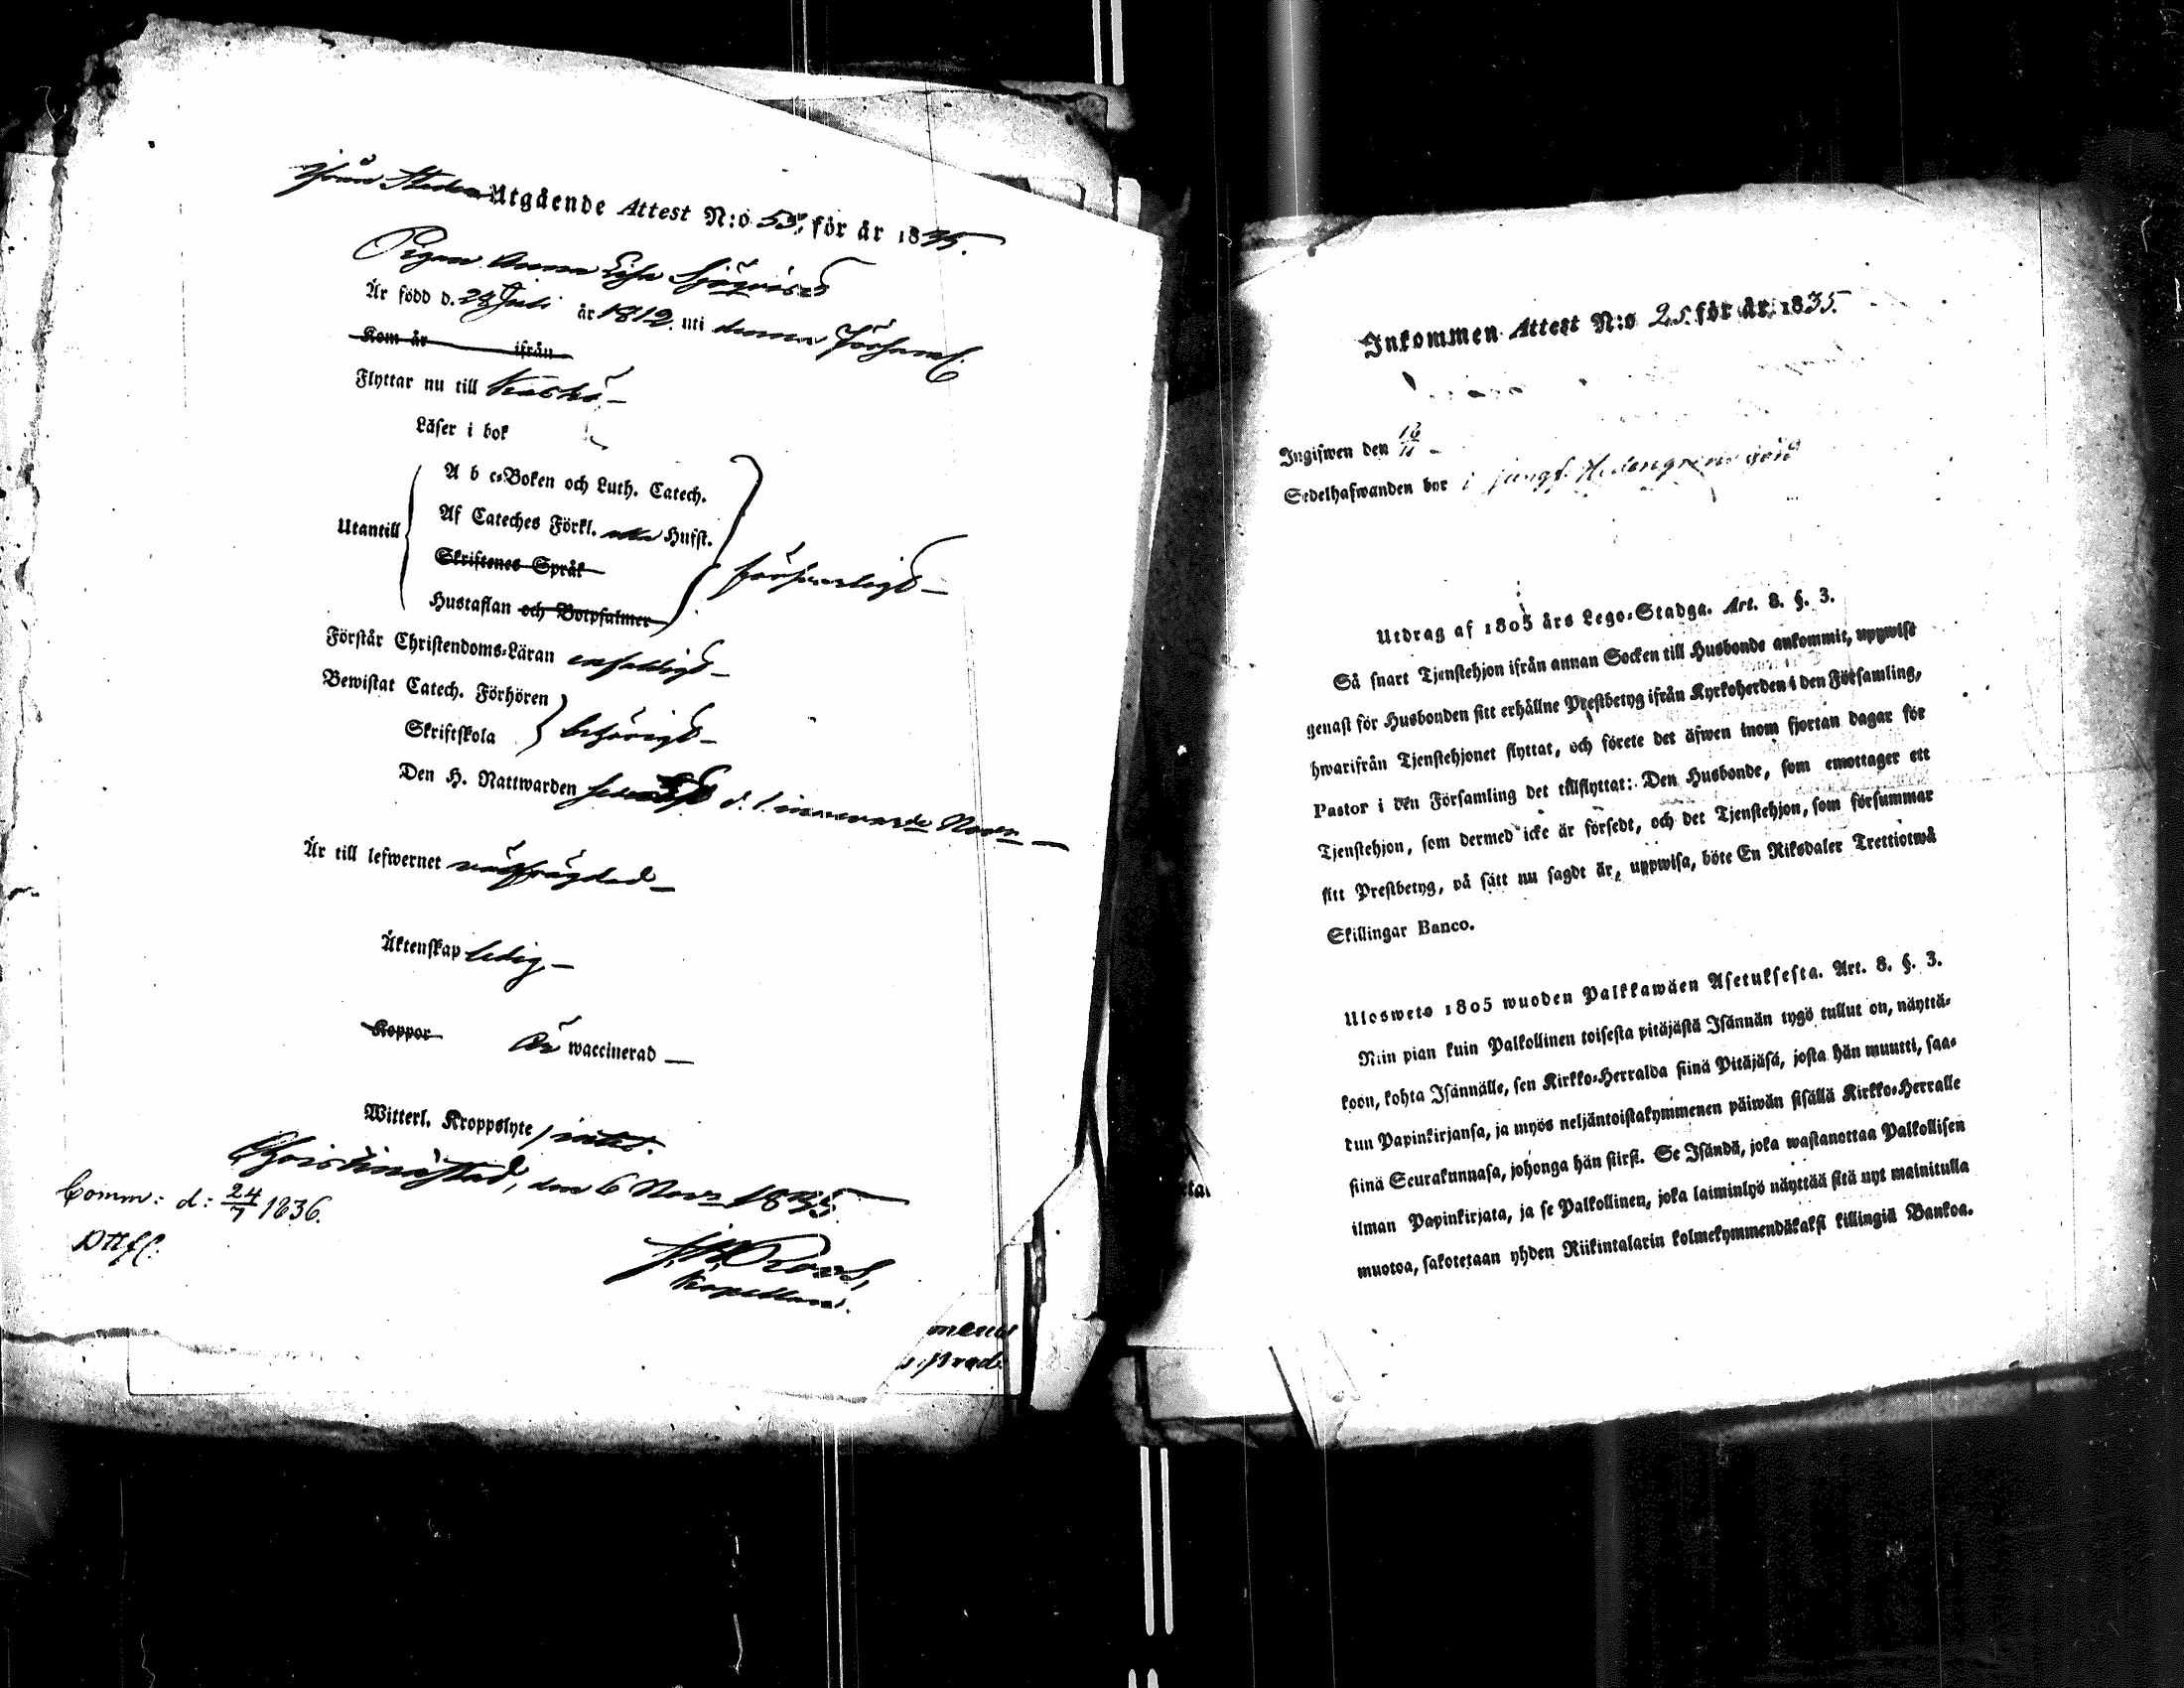 ifrån Staden Utgående Attest N:o 55, för år 1835.
Pigan Anna Lisa Sjöqvist
Är född d. 28 Juli år 1812 uti denna Församl.
Kom år ifrån
Flyttar nu till Kaskö –
Läser i bok
A b c-Boken och Luth. Catech.
Utantill
Af Cateches Förkl. Husf.
Skriftenes Språk
Hustaflan och Botpsalmer
försvarligt –
Förstår Christendoms-Läran enfaldigt –
Bewistat Catech. Förhören
Skriftskola
behörigt –
Den H. Nattwarden d. 1 innevarde Novr –
Är till lefwernet välfrägdad –
Äktenskap ledig –
Koppor Är waccinerad –
Witterl. Kroppslyte / intet.
Christinestad, den 6 Novr 1835.
Comm: d: 24/7 1836.
Roos,
Kapellan.
Inkommen Attest N:o 25. för år 1835.
Ingifwen den 16/11 –
Sedelhafwanden bor i jungf. Hedengrens gård
Utdrag af 1805 års Lego-Stadga. Art. 8. §. 3.
Så snart Tjenstehjon ifrån annan Socken till Husbonde ankommit, uppwist
genast för Husbonden sitt erhållne Prestbetyg ifrån Kyrkoherden i den Församling,
hwarifrån Tjenstehjonet flyttat, och förete det äfwen inom fjortan dagar för
Pastor i den Församling det tillflyttat: Den Husbonde, som emottager ett
Tjenstehjon, som dermed icke är försedt, och det Tjenstehjon, som försummar
sitt Prestbetyg, på sätt nu sagdt är, uppwisa, böte En Riksdaler Trettiotwå
Skillingar Banco.
Ulosweto 1805 wuoden Palkkawäen Asetuksesta. Art. 8. §. 3.
Niin pian kuin Palkollinen toisesta pitäjästä Isännän tygö tullut on, näyttä-
köön, kohta Isännälle, sen Kirkko-Herralda siinä Pitäjäsä, josta hän muutti, saa-
dun Papinkirjansa, ja myös neljäntoistakymmenen päiwän sisällä Kirkko-Herralle
siinä Seurakunnasa, johonga hän siirsi. Se Isändä, joka wastanottaa Palkollisen
ilman Papinkirjata, ja se Palkollinen, joka laiminlyö näyttää sitä nyt mainitulla
muotoa, sakotetaan yhden Riikintalarin kolmekymmendäkaksi killingiä Bankoa.